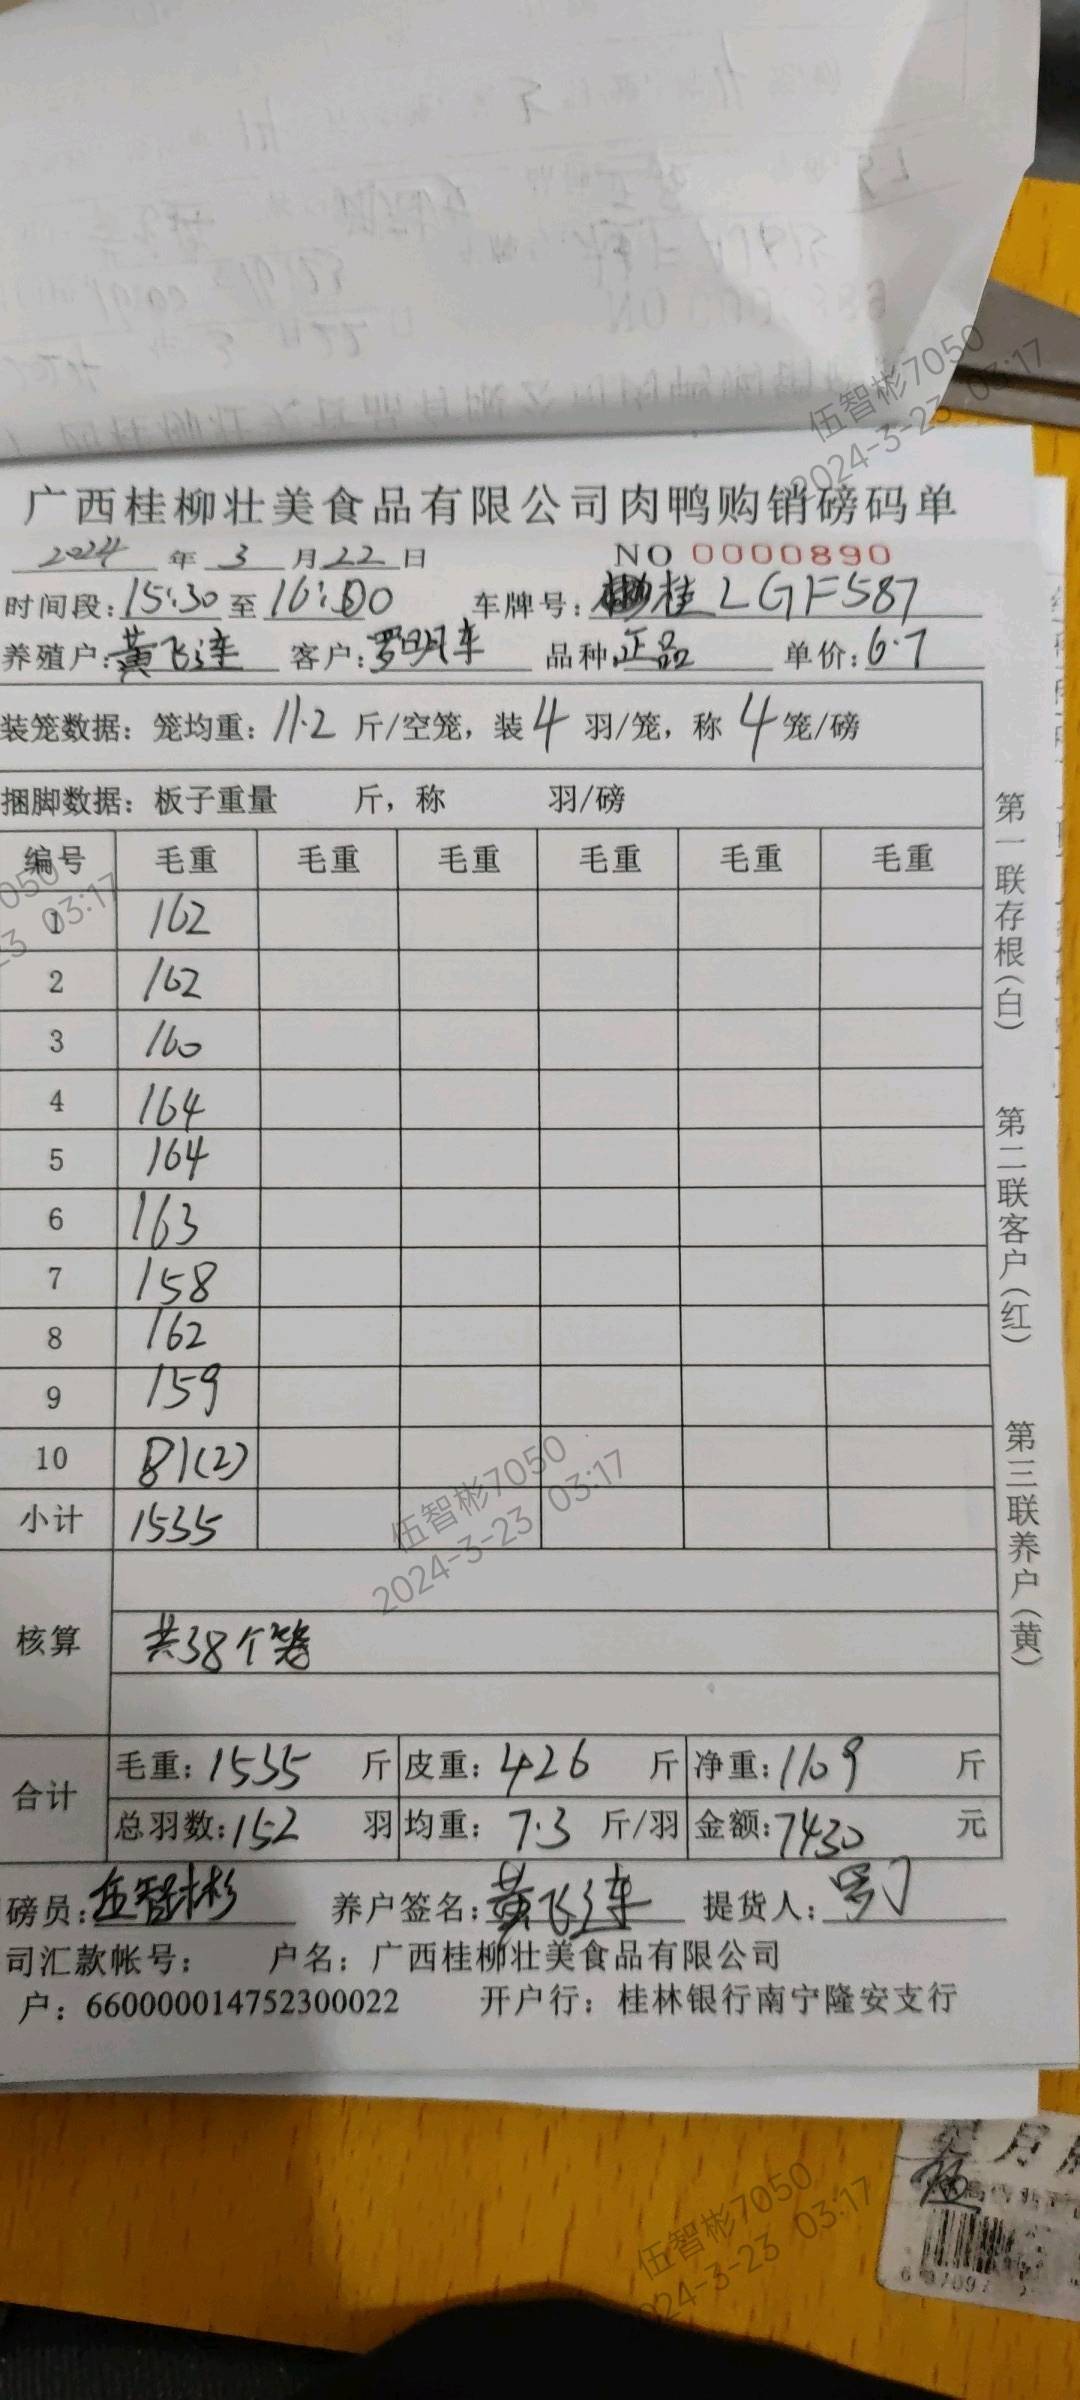 广西桂柳壮美食品有限公司肉鸭购销磅码单
2024 年 3 月 22 日 NO 0000890
时间段: 15:30 至 16:00 车牌号: 桂LGF587
养殖户: 黄飞连 客户: 罗明车 品种: 正品 单价: 6.7
装笼数据: 笼均重: 11.2 斤/空笼, 装 4 羽/笼, 称 4 笼/磅
捆脚数据: 板子重量 斤, 称 羽/磅
编号 毛重 毛重 毛重 毛重 毛重 毛重
1 162
2 162
3 160
4 164
5 164
6 163
7 158
8 162
9 159
10 81(2)
小计 1535
核算 共38个笼
合计 毛重: 1535 斤 皮重: 426 斤 净重: 1109 斤
总羽数: 152 羽 均重: 7.3 斤/羽 金额: 7430 元
磅员: 伍智彬 养户签名: 黄飞连 提货人:
司汇款帐号: 户名: 广西桂柳壮美食品有限公司
户: 660000014752300022 开户行: 桂林银行南宁隆安支行
第一联存根(白)
第二联客户(红)
第三联养户(黄)
伍智彬7050
2024-3-23 03:17
050
23 03:17
伍智彬7050
2024-3-23 03:17
伍智彬7050
024-3-23 03:17